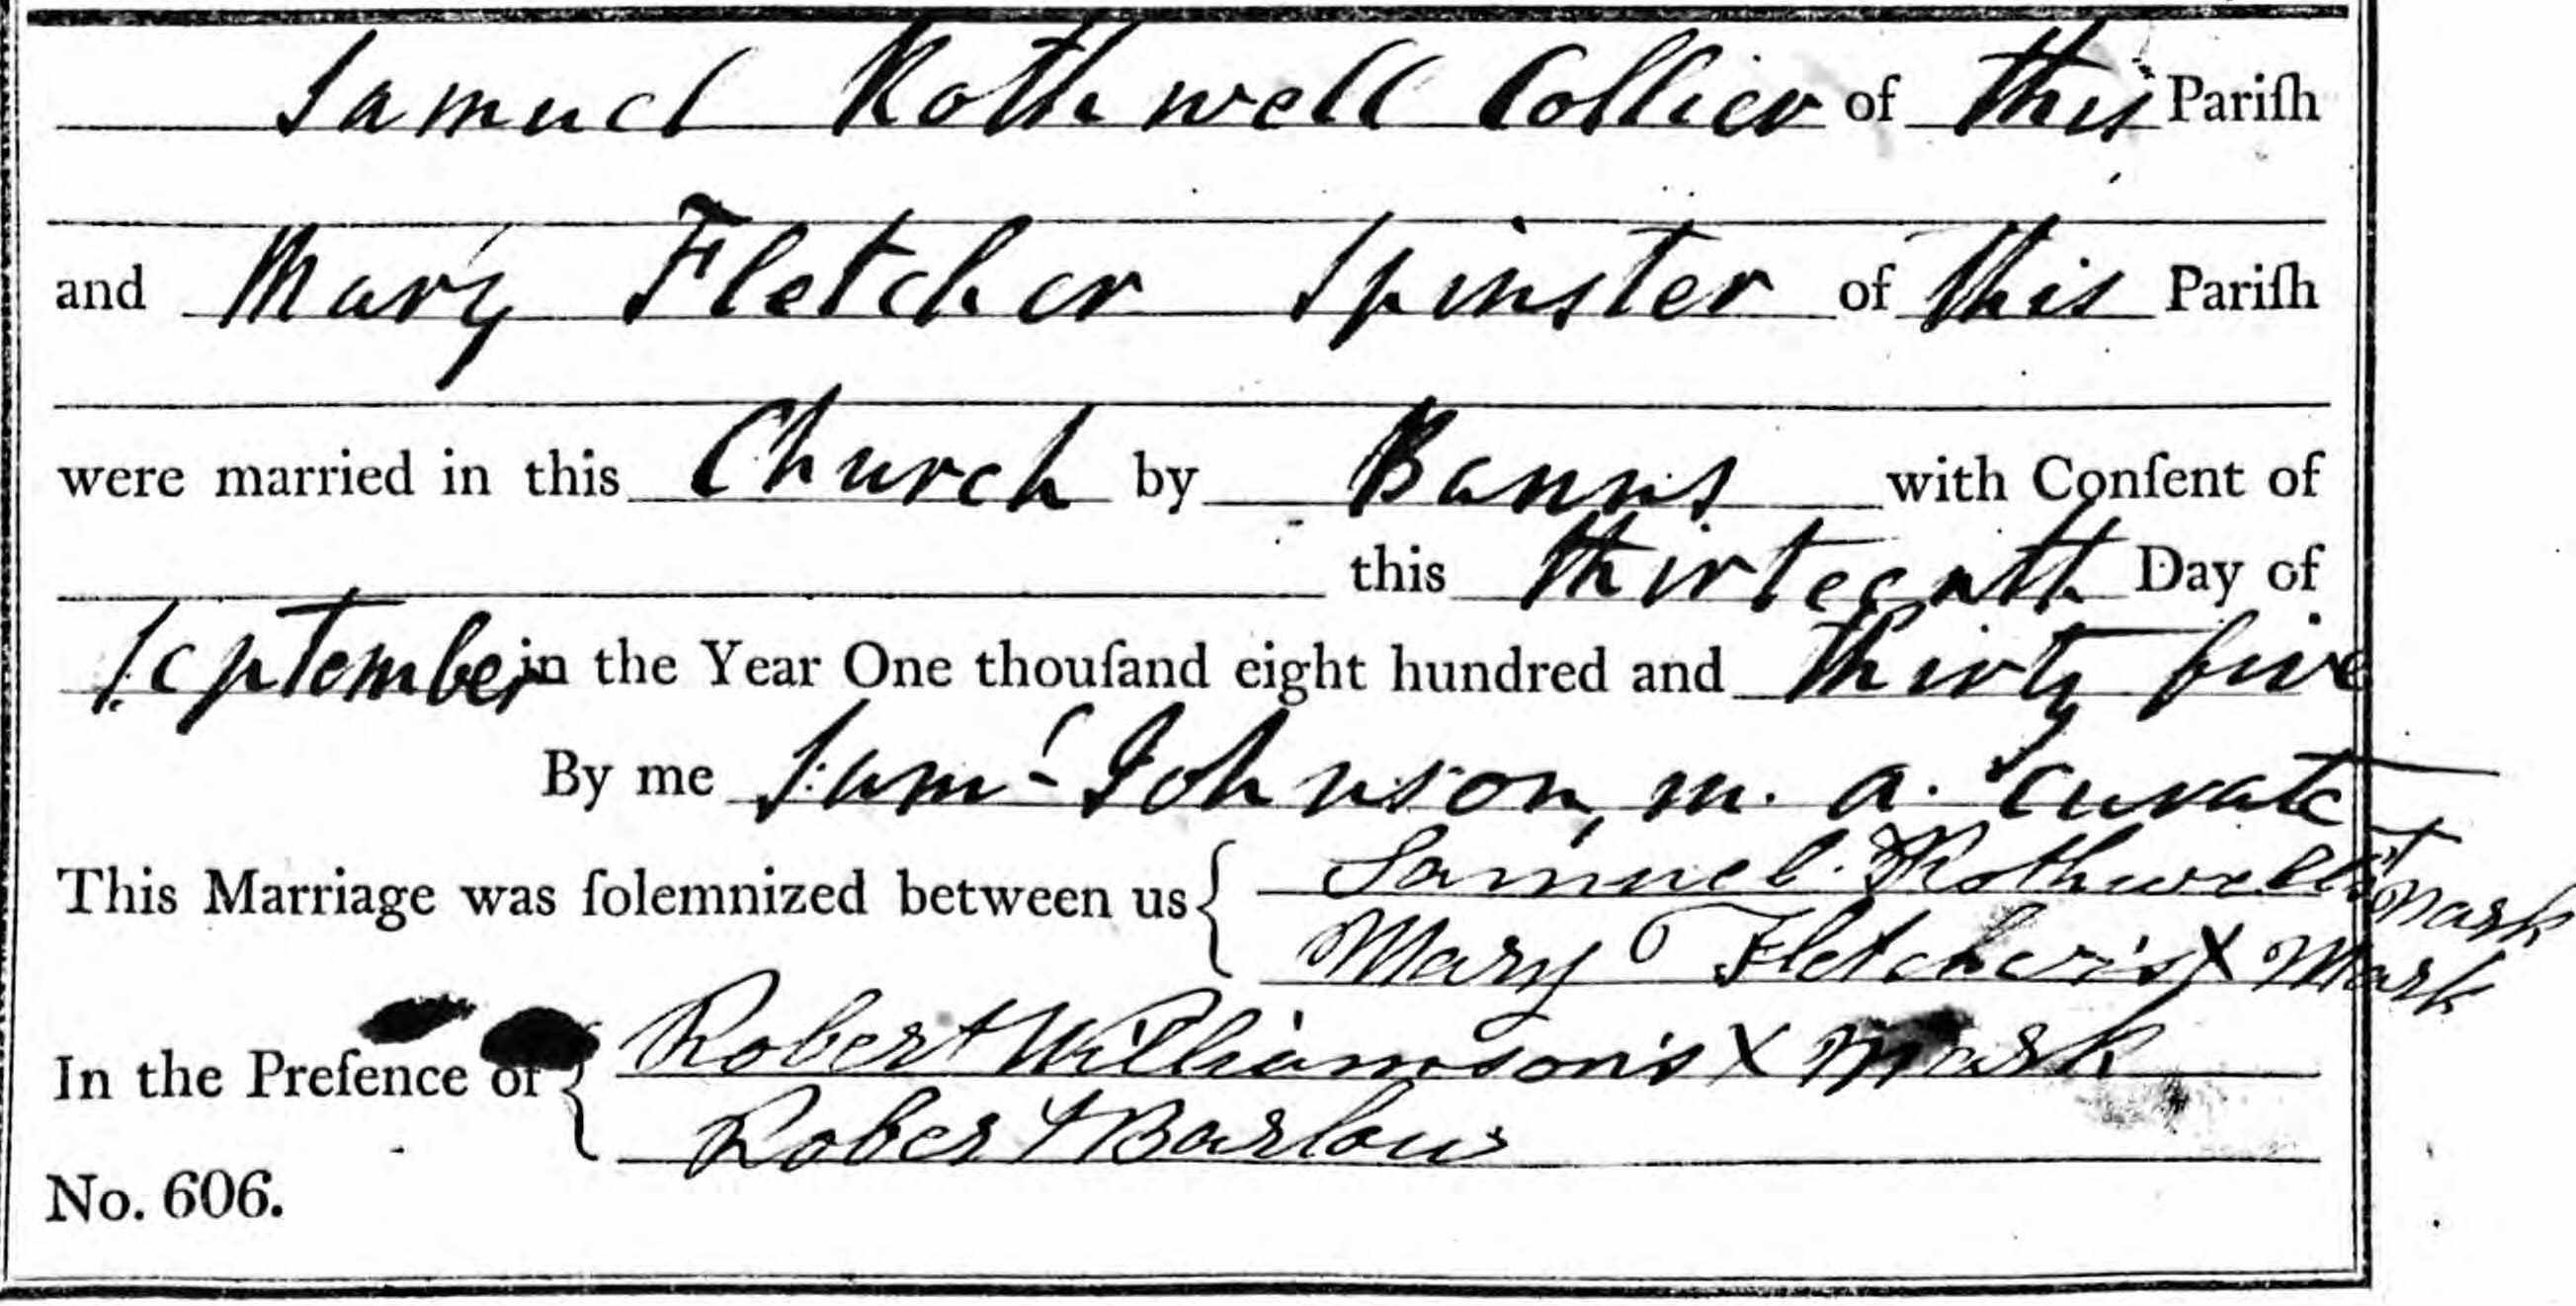 Samuel Rothwell Collier of this Pariſh
and Mary Fletcher Spinster of this Pariſh
were married in this Church by Banns with Conſent of
this thirteenth Day of
September in the Year One thouſand eight hundred and thirty five
By me Saml Johnson, m. a. Curate
This Marriage was ſolemnized between us { Samuel Rothwell's + Mark
Mary Fletcher's X Mark
In the Preſence of { Robert Williamson's X Mark
Robert Barlow
No. 606.